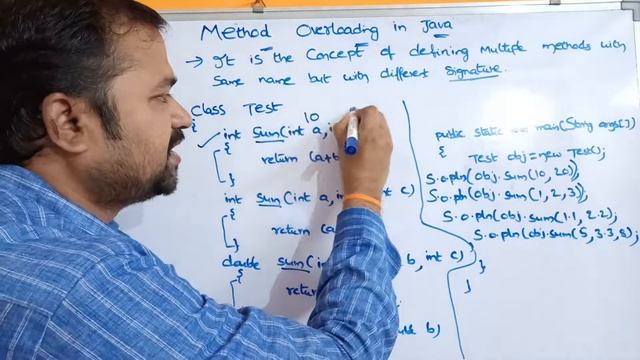 Method Overloading in Java
→ It is the Concept of defining Multiple methods with
Same name but with different Signature.
Class Test
{
10
int Sum(int a,
{
return (a+b
}
int Sum(int a, int c)
{
return (a
}
double Sum(in b, int c)
{
return
b)
public static main(String args[])
{
Test obj=new Test();
S.o.pln(obj.sum(10, 20));
S.o.pln(obj.sum(1, 2, 3));
S.o.pln(obj.sum(1.1, 2.2);
S.o.pln(obj.sum(5, 3.3, 8);
}
}